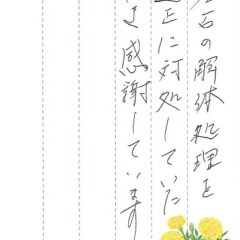 石の解体処理を
正に対処していた
き感謝しています